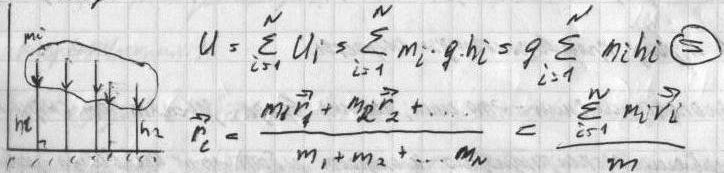 mi
U = \sum_{i=1}^{N} U_i = \sum_{i=1}^{N} m_i \cdot g \cdot h_i = g \sum_{i=1}^{N} m_i h_i (=)
h1 h2
\vec{r}_c = \frac{m_1 \vec{r}_1 + m_2 \vec{r}_2 + ....}{m_1 + m_2 + ... m_N} = \frac{\sum_{i=1}^{N} m_i \vec{r}_i}{m}